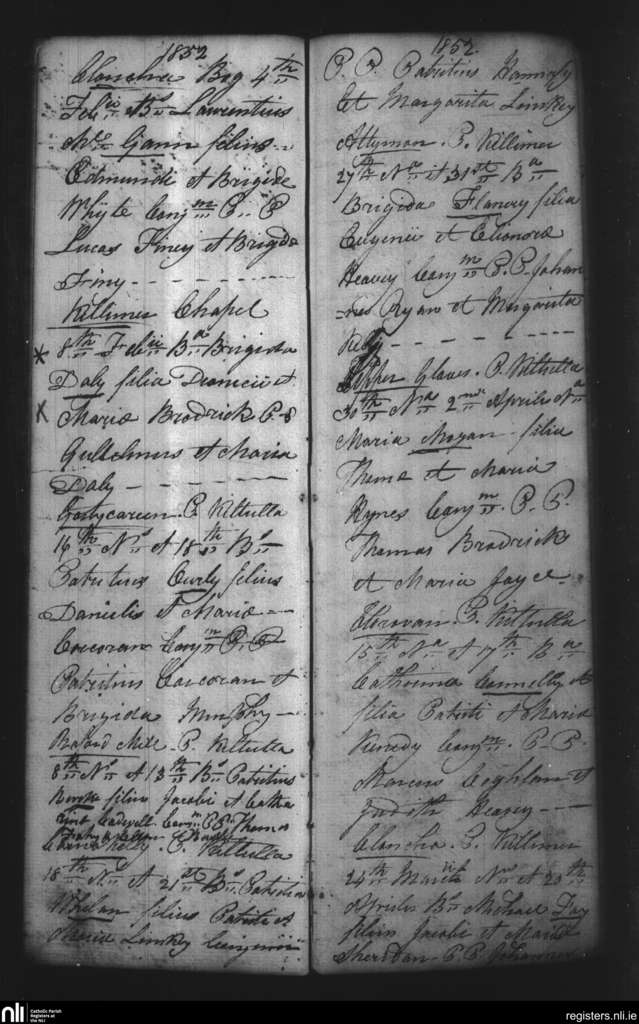 1852
Clonchea Bog 4th
Feb ii Bs Laurentius
Mc Gann filius
Edmundi et Brigida
Whyte Conj m P. P
Lucas Finey et Brigida
Finy
Killimer Chapel
8th Feb ii Ba Brigida
Daly filia Dionicii et
Maria Brodrick P. S
Gulielmus et Maria
Daly
P. Kiltulla
16th Ns et 18th Bs
Patritius Curly filius
Danielis et Maria
Corcoran Conj m P. P
Patritius Corcoran et
Brigida Murphy
Raford Mill P. Kiltulla
8th Ns et 13th Bs Patritius
filius Jacobi et Catha
rina Conj m P. S. Thomas
P. Kiltulla
18th Ns et 21st Bs Patritius
Whelan filius Patritii et
Maria Linsky Conj
1852
P. P. Patritius
et Margarita Linskey
Attyman P. Killimer
27th Na et 31st Ba
Brigida Flanery filia
Eugenii et Elionora
Heavey Conj m P. P. Johan
nes Ryan et Margarita
Kelly
P. Kiltulla
30th Na 2nd Aprilis Na
Maria Mogan filia
Thoma et Maria
Hynes Conj m P. P.
Thomas Brodrick
et Maria Joyce
P. Kiltulla
15th Na et 17th Ba
Catherina Connelly
filia Patritii et Maria
Kenedy Conj m P. P.
Marcus Coghlan et
Judith Heavey
Clonchea P. Killimer
24th Martii Ns et 20th
Aprilis Bs Michael Day
filius Jacobi et Maria
Sheridan P. P. Johannes
nli
Catholic Parish
Registers at
the NLI
registers.nli.ie